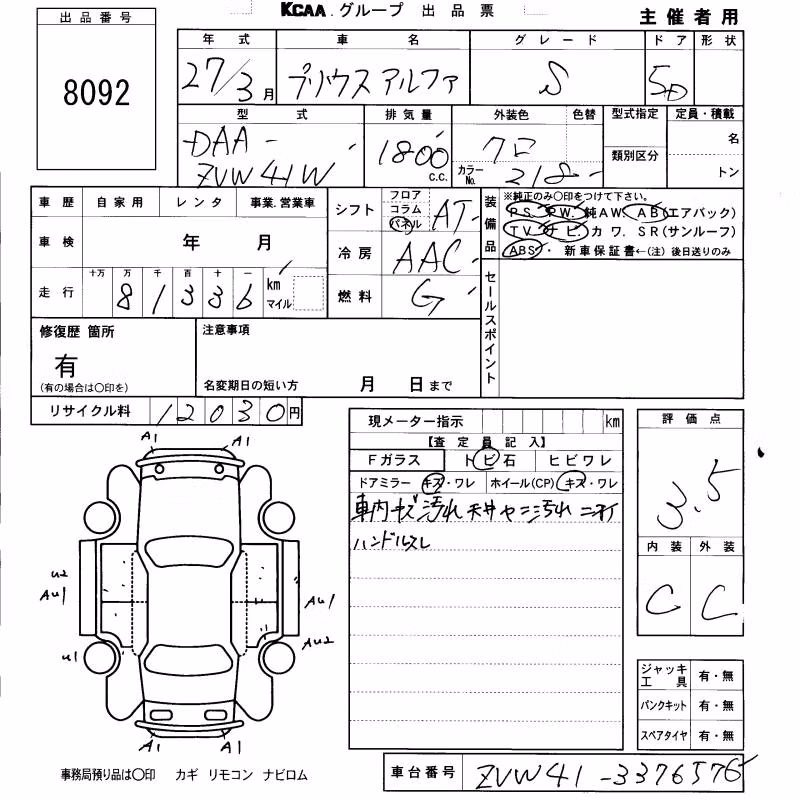 KCAA.グループ 出品票 主催者用
出品番号
8092
年式 車名 グレード ドア 形状
27/3月 プリウスアルファ S 5D
型式 排気量 外装色 色替 型式指定 定員・積載
DAA- ZVW41W 1800 C.C. クロ カラーNo. 218 類別区分 名 トン
車歴 自家用 レンタ 事業.営業車
シフト フロア コラム パネル AT
装備品 ※純正のみ〇印をつけて下さい。
PS. PW. 純AW. AB(エアバック)
TV. ナビ. カワ. SR(サンルーフ)
ABS・ 新車保証書←(注) 後日送りのみ
車検 年 月
冷房 AAC
走行 十万 万 千 百 十 一 km マイル
81336
燃料 G
セールスポイント
修復歴 箇所
有
(有の場合は〇印を)
注意事項
名変期日の短い方 月 日まで
リサイクル料 12030円
現メーター指示 km
【査定員記入】
Fガラス トビ石 ヒビワレ
ドアミラー キズ・ワレ ホイール(CP) キズ・ワレ
車内キズ汚れ 天井ヤニ汚れ ニオイ
ハンドルスレ
評価点
3.5
内装 外装
C C
A1 A1
U2
AU1 AU1
AU2
U1
A1 A1
ジャッキ工具 有・無
パンクキット 有・無
スペアタイヤ 有・無
事務局預り品は〇印 カギ リモコン ナビロム
車台番号 ZVW41-3376576